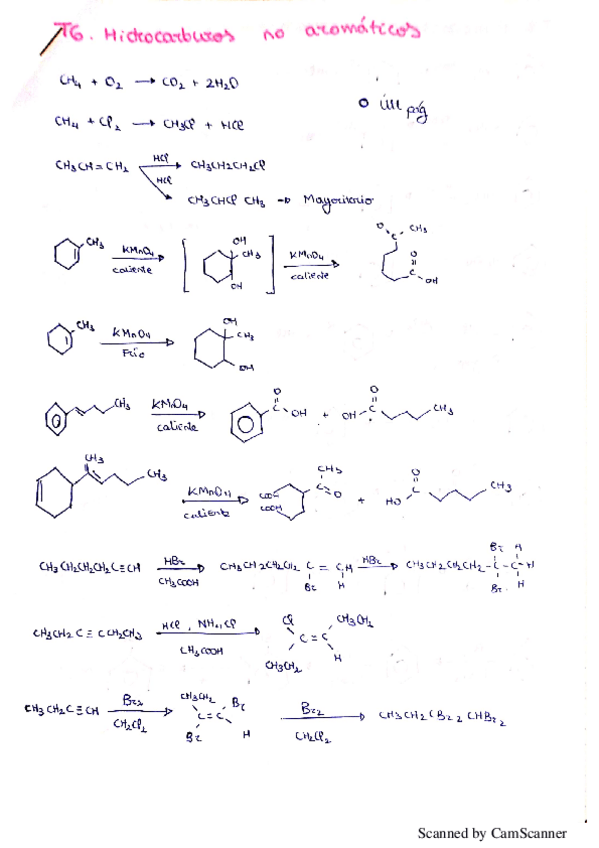 T6. Hidrocarburos no aromáticos
CH4 + O2 → CO2 + 2H2O
O últ pág
CH4 + Cl2 → CH3Cl + HCl
CH3CH=CH2 HCl → CH3CH2CH2Cl
HCl → CH3CHCl CH3 → Mayoritario
CH3 KMnO4 caliente → [ OH CH3 OH ] KMnO4 caliente → O C CH3 O C OH
CH3 KMnO4 Frío → OH CH3 OH
CH3 KMnO4 caliente → O C OH + OH C O CH3
CH3 CH3 KMnO4 caliente → COOH CH3 C=O + HO C O CH3
CH3CH2CH2CH2C≡CH HBr CH3COOH → CH3CH2CH2CH2 C = CH Br H HBr → CH3CH2CH2CH2-C-C-H Br H Br H
CH3CH2C≡CCH2CH3 HCl, NH4Cl CH3COOH → Cl CH3CH2 C=C CH3CH2 H
CH3CH2C≡CH Br2 CH2Cl2 → CH3CH2 Br C=C Br H Br2 CH2Cl2 → CH3CH2CBr2CHBr2
Scanned by CamScanner